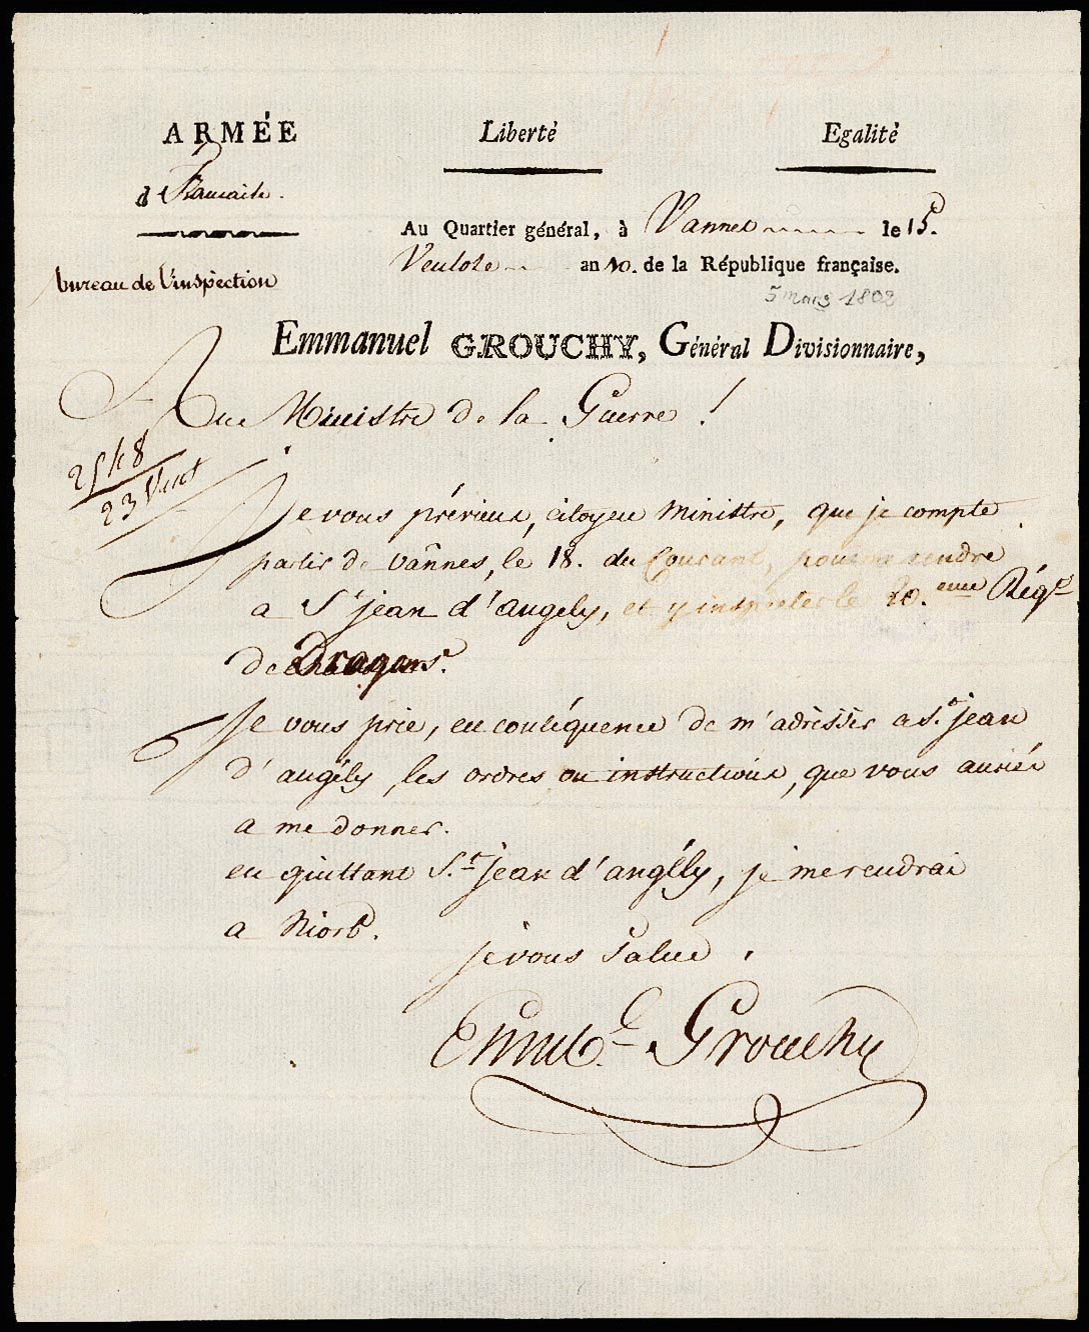 ARMÉE
Liberté
Egalité
française.
Au Quartier général, à Vannes le 15.
Ventose an 10. de la République française.
bureau de l'inspection
5 mars 1802
Emmanuel GROUCHY, Général Divisionnaire,
Au Ministre de la Guerre !
2548
23 Vent
Je vous préviens, citoyen Ministre, que je compte
partir de Vannes, le 18. du Courant, pour me rendre
a St jean d'angely, et y inspecter le 20.eme Régt
de Dragons.
Je vous prie, en conséquence de m'adresser a St. jean
d'angély, les ordres ou instructions, que vous auriés
a me donner.
en quittant St. jean d'angély, je me rendrai
a Niort.
je vous salue.
Emmle. Grouchy